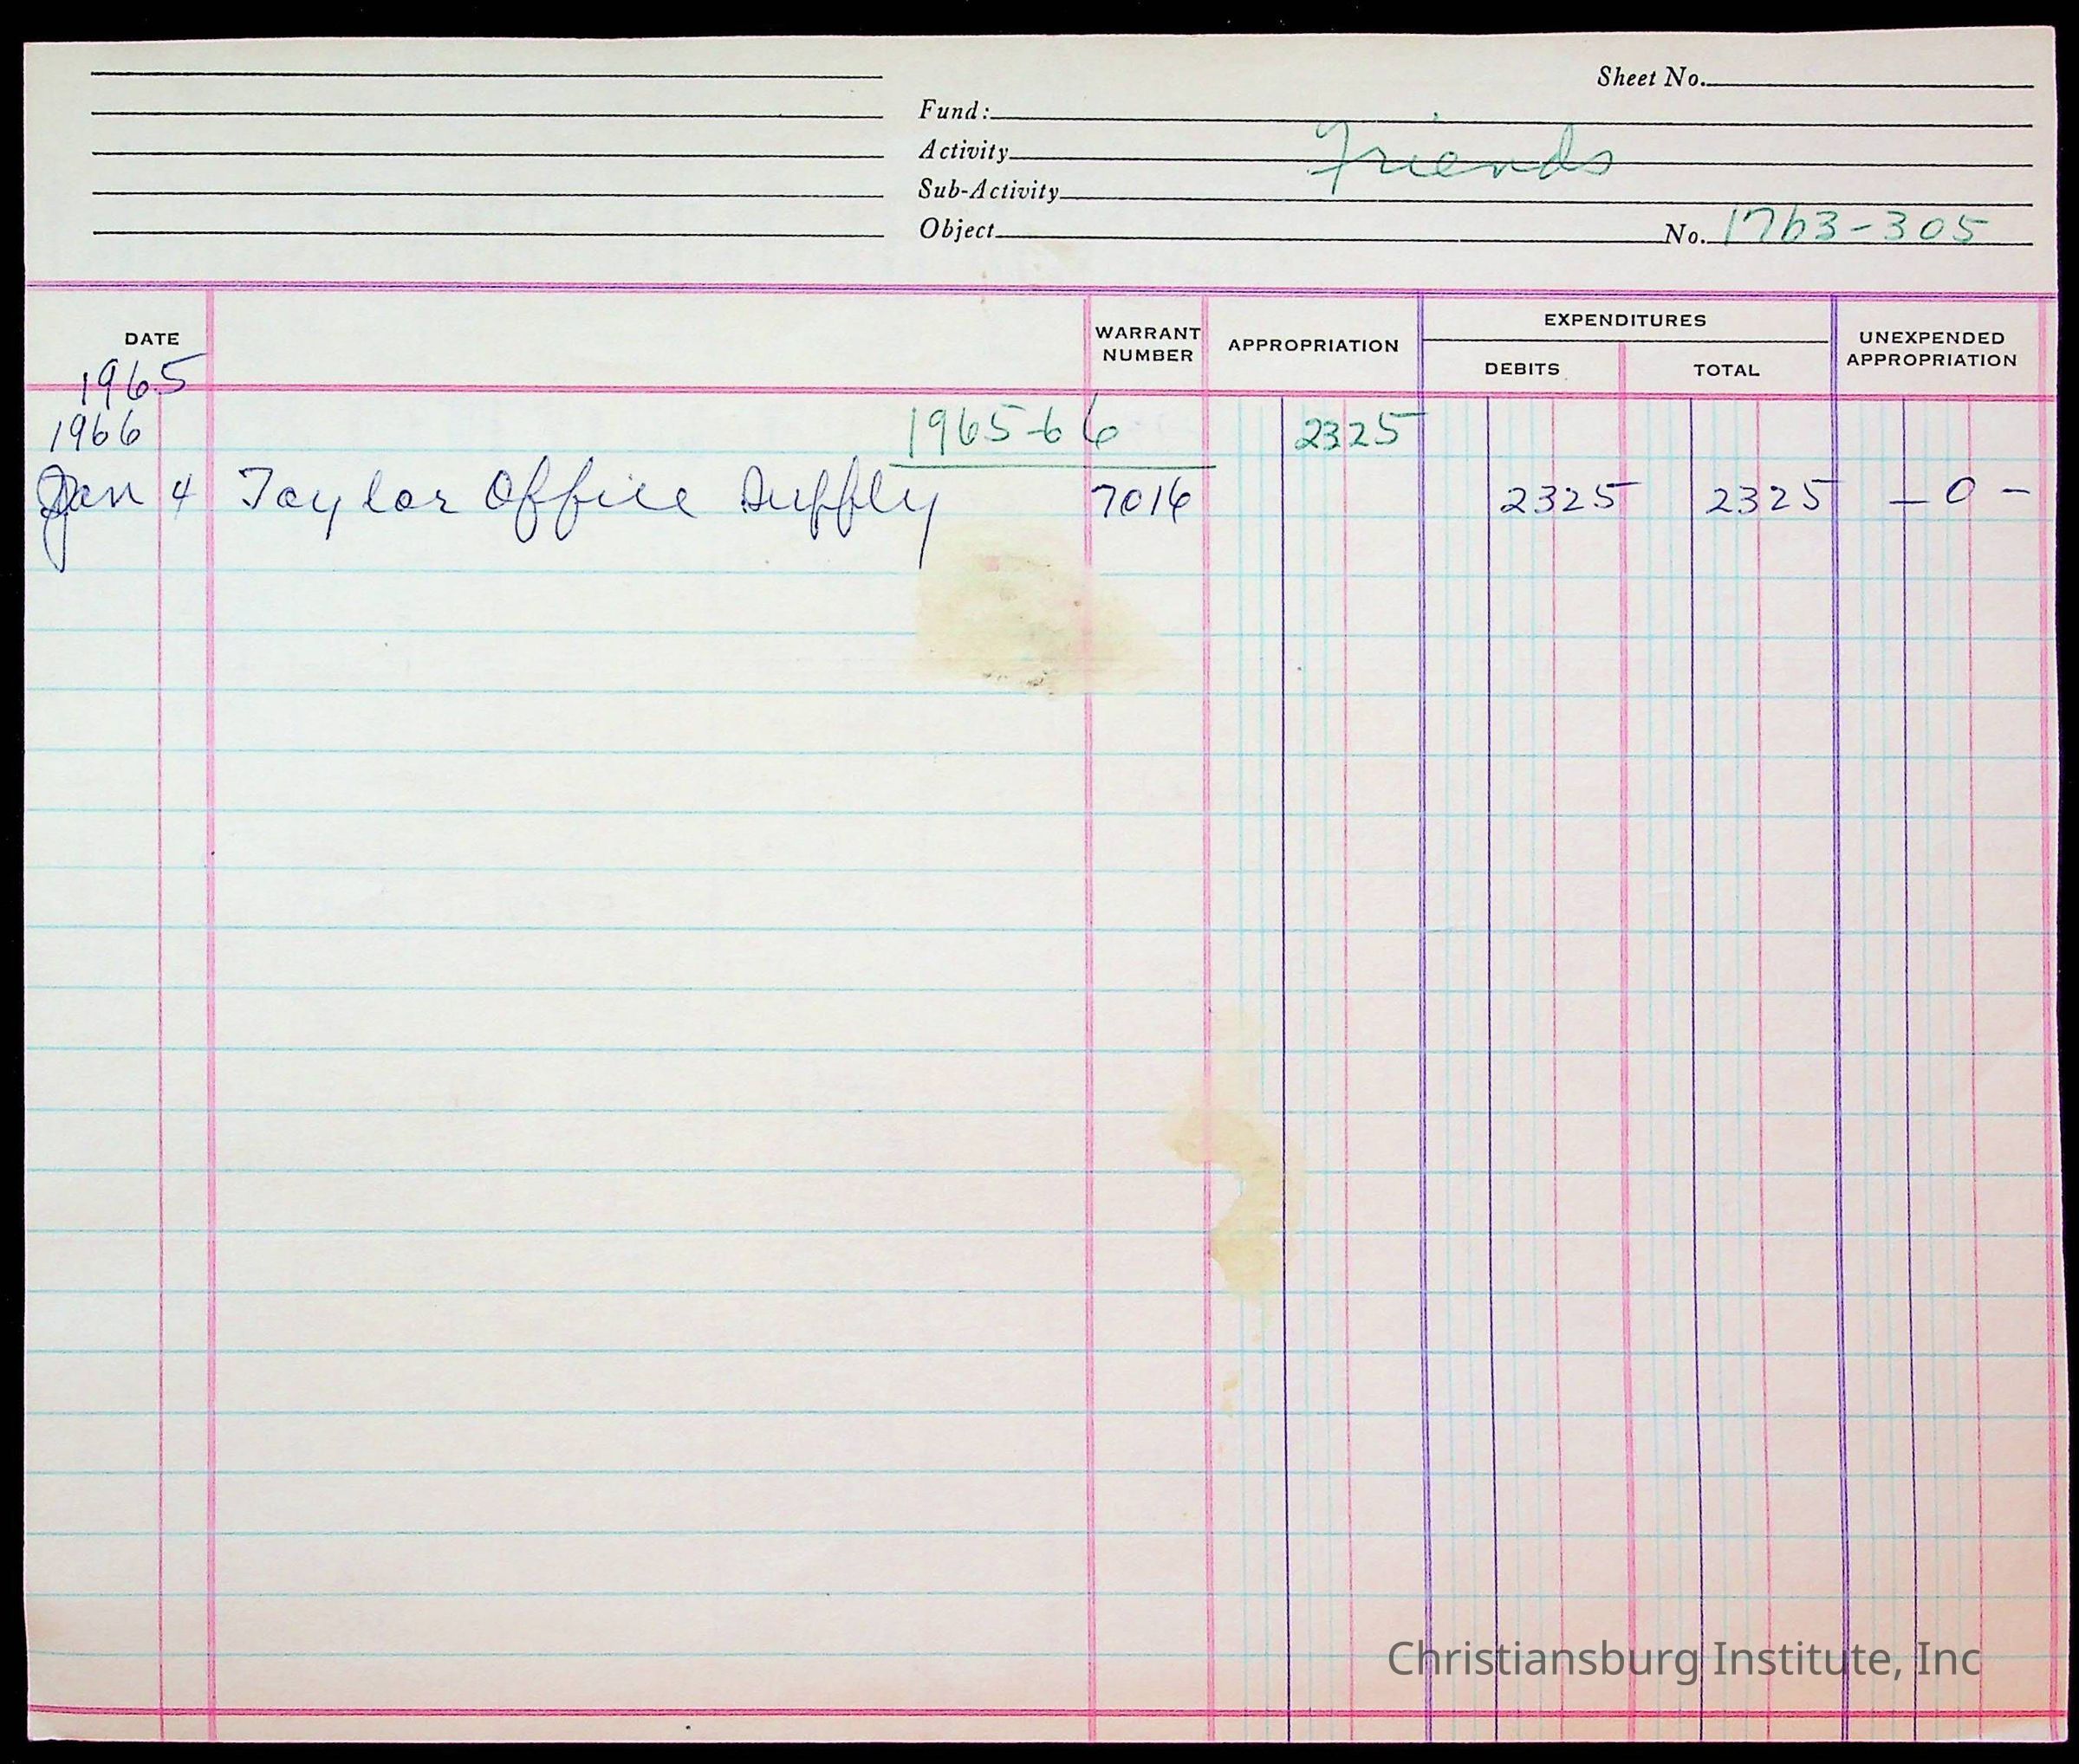 Sheet No.
Fund:
Activity Friends
Sub-Activity
Object No. 1763-305
DATE WARRANT NUMBER APPROPRIATION EXPENDITURES DEBITS TOTAL UNEXPENDED APPROPRIATION
1965
1966 1965-66 2325
Jan 4 Taylor Office Supply 7016 2325 2325 -0-
Christiansburg Institute, Inc